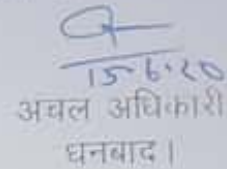 15-6-20
अचल अधिकारी
धनबाद।